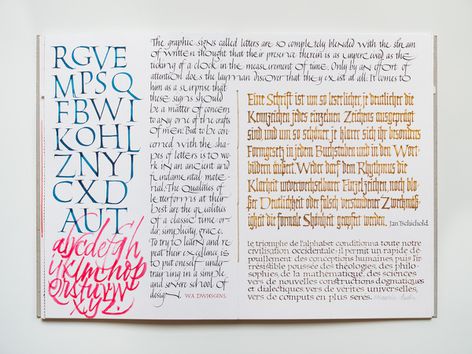 RGVE
MPSQ
FBWI
KOHL
ZNYJ
CXD
AUT
abcdefgh
ijklmnop
qrstuvw
xyz.
The graphic signs called letters are so completely blended with the stream
of written thought that their presence therein is as unperceived as the
ticking of a clock in the measurement of time. Only by an effort of
attention does the layman discover that they exist at all. It comes to
him as a surprise that
these signs should
be a matter of concern
to any one of the crafts
of men. But to be con-
cerned with the sha-
pes of letters is to wo-
rk in an ancient and
fundamental mate-
rial. The Qualities of
letterform at their
best are the qualities
of a classic time: or-
der, simplicity, grace.
To try to learn and re-
peat their excellence is
to put oneself under
training in a simple
and severe school of
design. W.A. DWIGGINS.
Eine Schrift ist um so leserlicher, je deutlicher die
Kennzeichen jedes einzelnen Zeichens ausgeprägt
sind und um so schöner, je klarer sich ihr besonderes
Formgesetz in jedem Buchstaben und in den Wort-
bildern äußert. Weder darf dem Rhythmus die
Klarheit unverwechselbarer Einzelzeichen noch blo-
ßer Deutlichkeit oder falsch verstandener Zweckmäs-
sigkeit die formale Schönheit geopfert werden. Jan Tschichold.
le triomphe de l'alphabet conditionna toute notre
civilisation occidentale: il permit un rapide dé-
pouillement des conceptions humaines puis l'ir-
résistible poussée des théologies, des philoso-
phies, de la mathématique, des sciences
vers de nouvelles constructions dogmatiques
et dialectiques, vers de vérités universelles,
vers de computs en plus serrés.